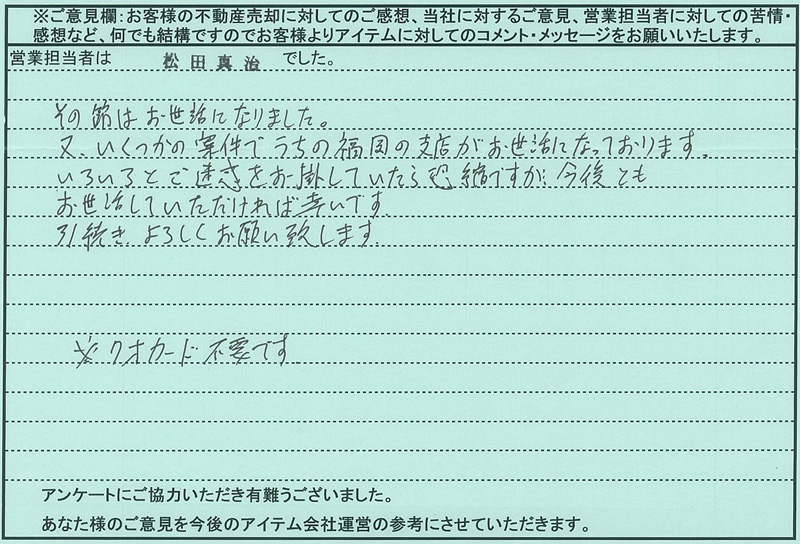 ※ご意見欄：お客様の不動産売却に対してのご感想、当社に対するご意見、営業担当者に対しての苦情・
感想など、何でも結構ですのでお客様よりアイテムに対してのコメント・メッセージをお願いいたします。
営業担当者は 松田真治 でした。
その節はお世話になりました。
又、いくつかの案件でうちの福岡の支店がお世話になっております。
いろいろとご迷惑をお掛していたら恐縮ですが、今後とも
お世話していただければ幸いです。
引続き、よろしくお願い致します。
※クオカード不要です
アンケートにご協力いただき有難うございました。
あなた様のご意見を今後のアイテム会社運営の参考にさせていただきます。